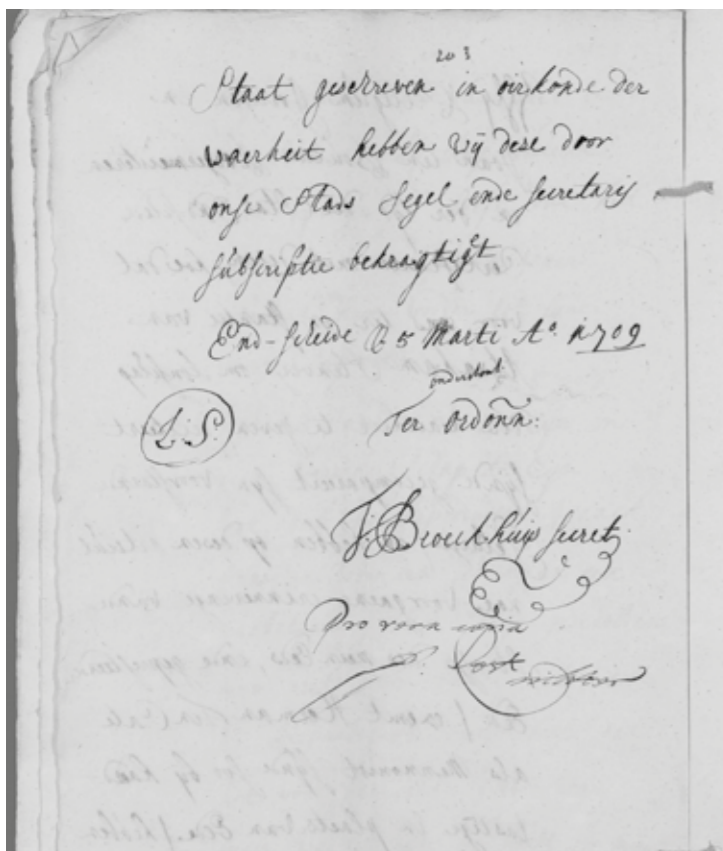 203
Staat geschreven in oirkonde der
waerheit hebben wij dese door
onse Stads Segel ende Secretarij
subscriptie bekragtigt
End-scheide 5 Marti Ao. 1709
onderstont
L: S:
Ter Ordonn:
Broeckhuijs Secret:
Pro vera copia